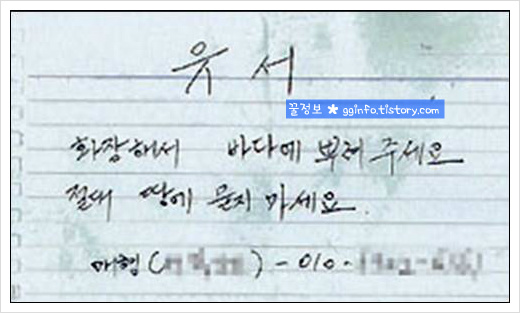 유서
꿀정보 ★ gginfo.tistory.com
화장해서 바다에 뿌려 주세요
절대 땅에 묻지 마세요.
매형( ) - 010 -